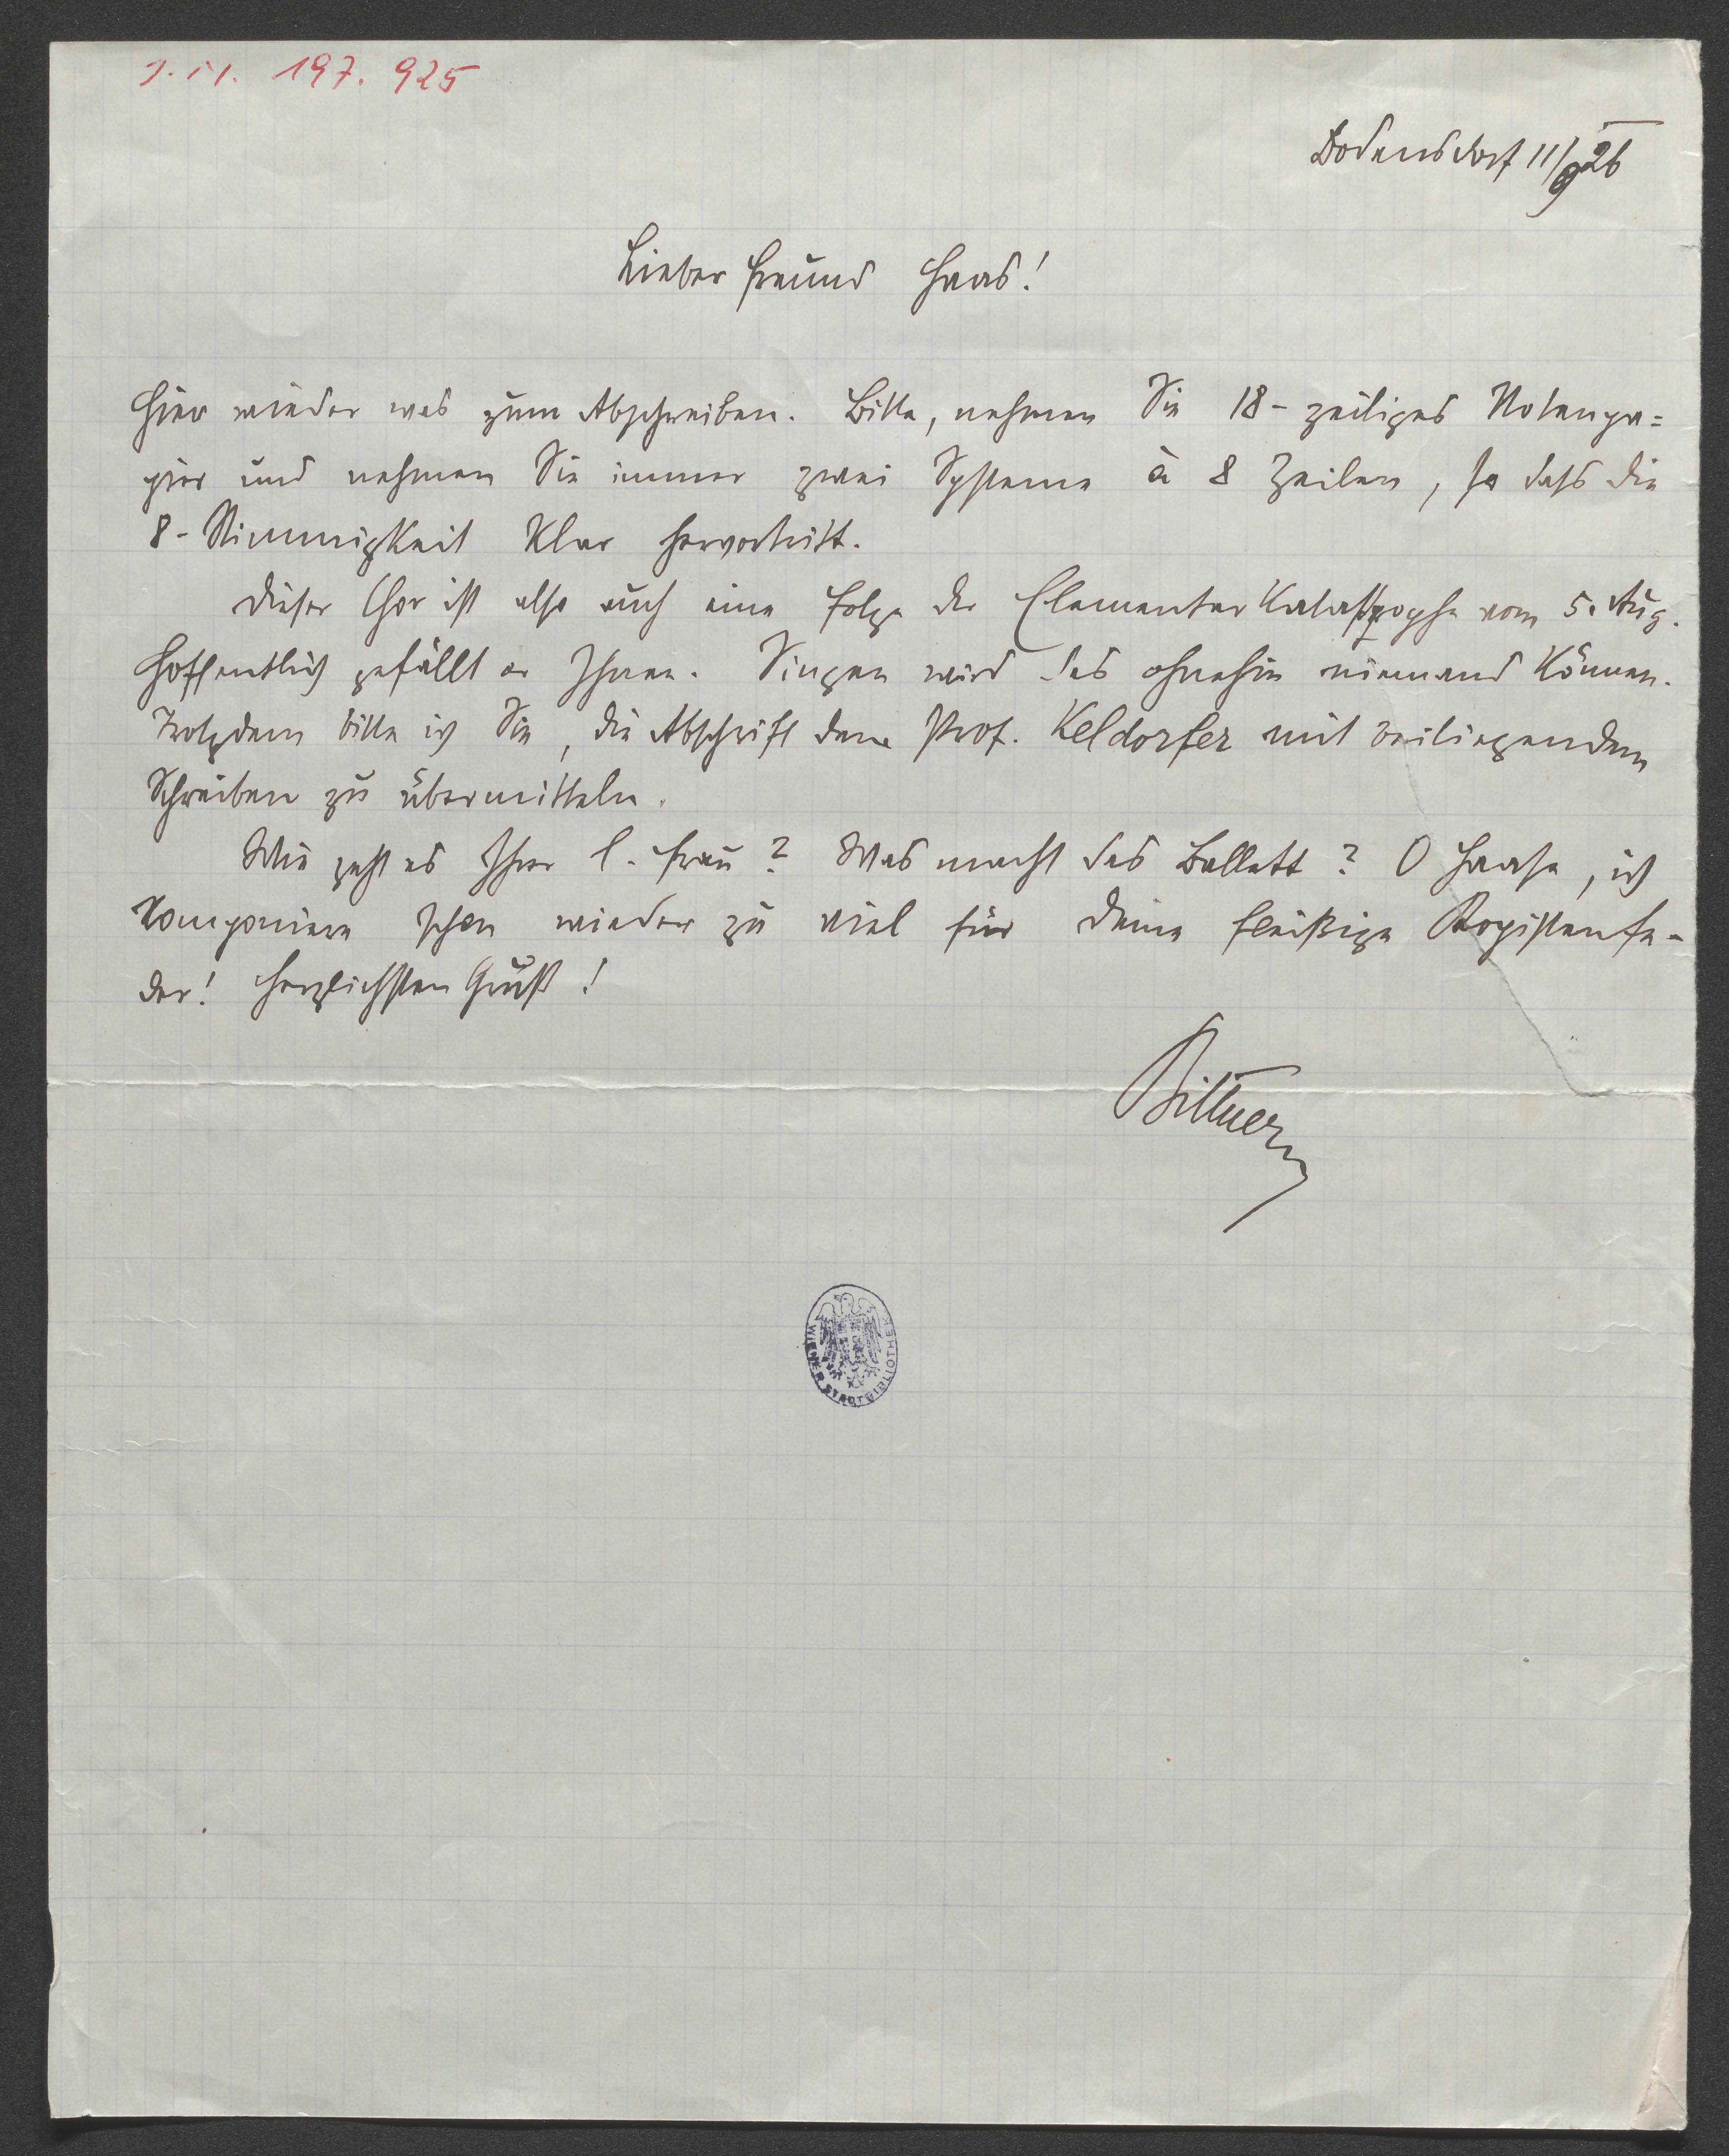 J. N. 197.925
Bodensdorf 11/9 26
Lieber Freund Haas!
Hier wieder was zum Abschreiben. Bitte, nehmen Sie 18-zeiliges Notenpa=
pier und nehmen Sie immer zwei Systeme à 8 Zeilen, so dass die
8-Stimmigkeit klar hervortritt.
Dieser Chor ist also auch eine Folge der Elementarkatastrophe vom 5. Aug.
Hoffentlich gefällt er Ihnen. Singen wird das ohnehin niemand können.
Trotzdem bitte ich Sie, die Abschrift dem Prof. Keldorfer mit beiliegendem
Schreiben zu übermitteln.
Wie geht es Ihrer l. Frau? Was macht das Ballett? O Haase, ich
komponiere schon wieder zu viel für deine fleißige Kopistenfe-
der! Herzlichsten Gruß!
Bittner
WIENER STADTBIBLIOTHEK